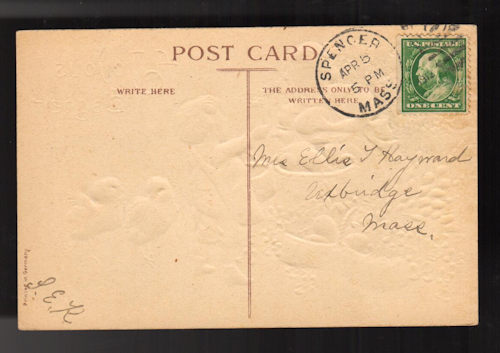 POST CARD
WRITE HERE
THE ADDRESS ONLY TO BE
WRITTEN HERE
SPENCER
APR 5
5 PM
MASS
U.S. POSTAGE
ONE CENT
Mrs Ellis T Hayward
Uxbridge
Mass.
Printed in Germany